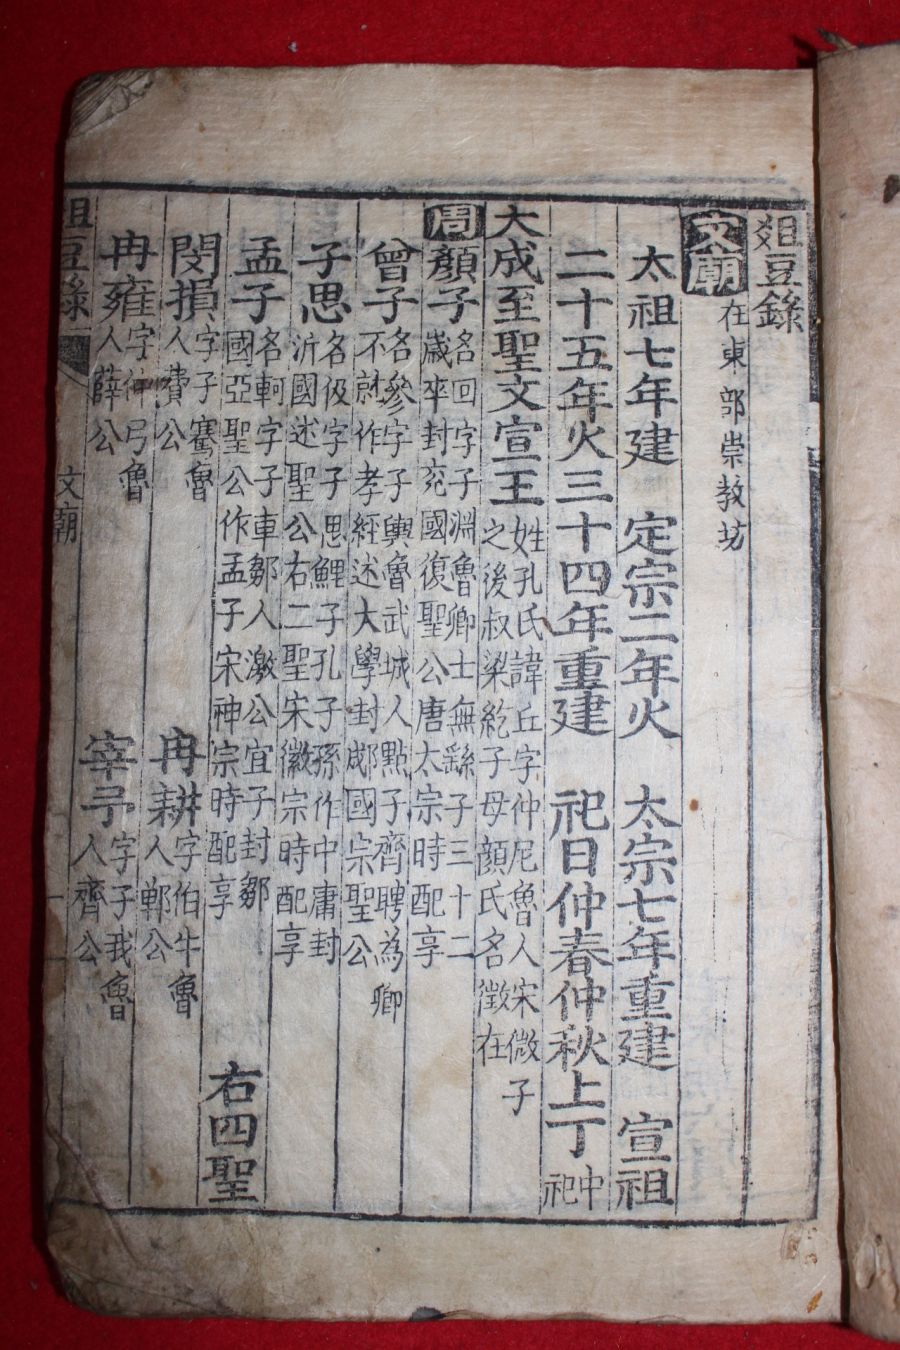 俎豆錄
文廟 在東部崇教坊
太祖七年建 定宗二年火 太宗七年重建 宣祖
二十五年火三十四年重建 祀日仲春仲秋上丁中祀
大成至聖文宣王 姓孔氏諱丘字仲尼魯人宋微子
之後叔梁紇子母顔氏名徵在
周 顔子 名回字子淵魯卿士無繇子三十二
歲卒封兗國復聖公唐太宗時配享
曾子 名參字子輿魯武城人點子齊聘為卿
不就作孝經述大學封郕國宗聖公
子思 名伋字子思鯉子孔子孫作中庸封
沂國述聖公右二聖宋徽宗時配享
孟子 名軻字子車鄒人激公宜子封鄒
國亞聖公作孟子宋神宗時配享
右四聖
閔損 字子騫魯
人費公
冉耕 字伯牛魯
人鄆公
冉雍 字仲弓魯
人薛公
宰予 字子我魯
人齊公
俎豆錄 文廟 一